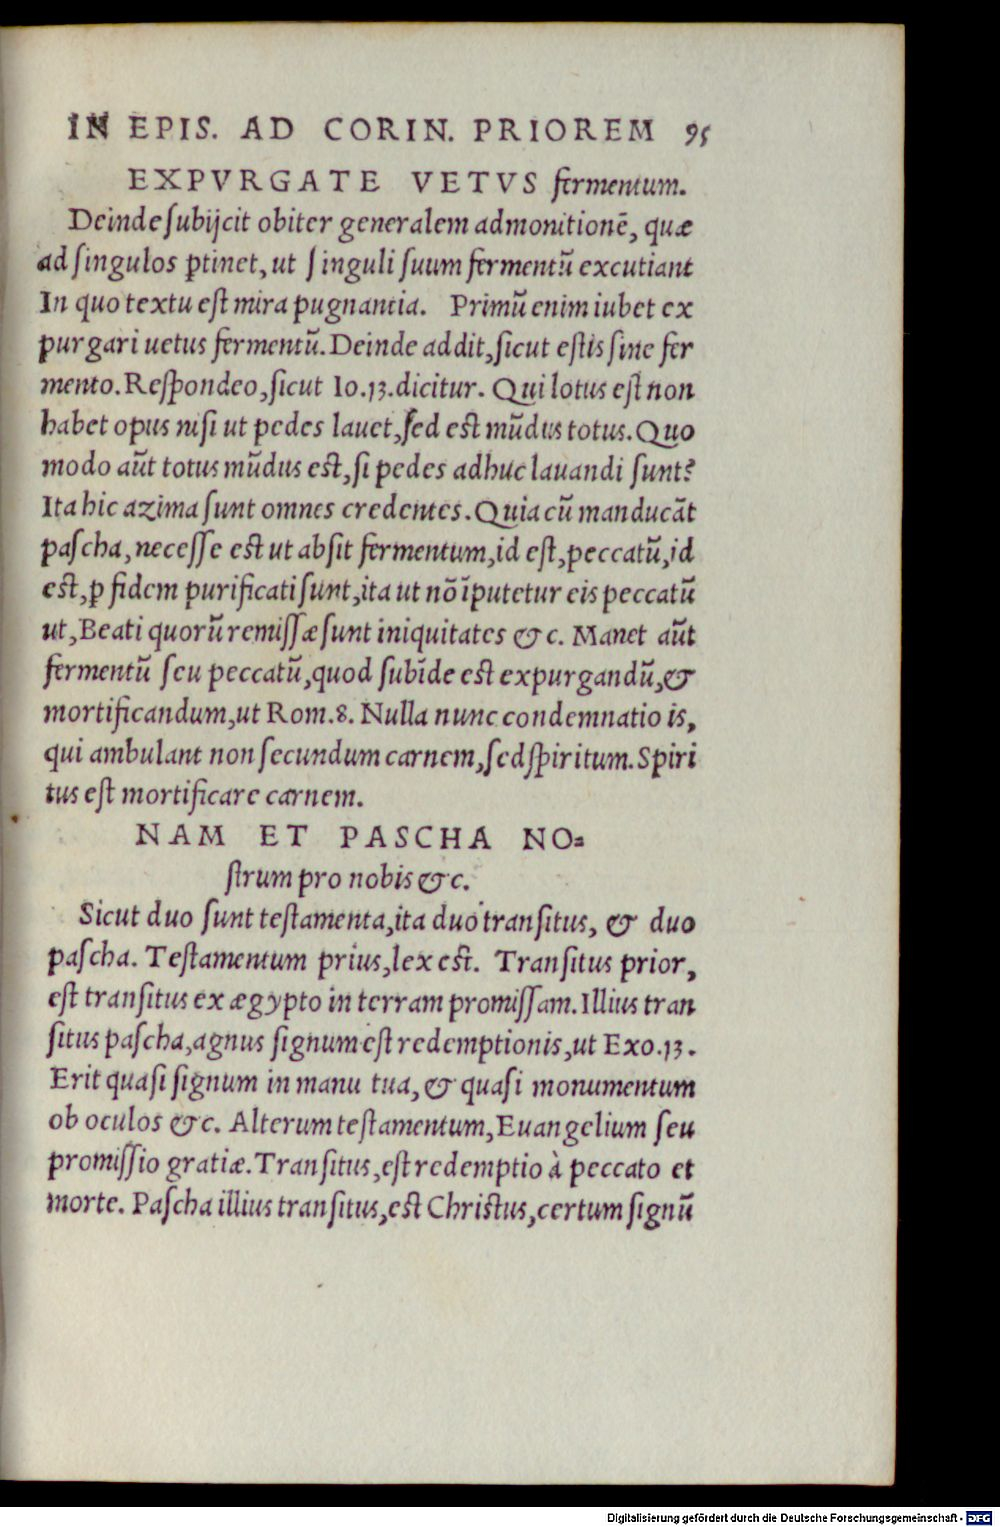 IN EPIS. AD CORIN. PRIOREM 95
EXPVRGATE VETVS fermentum.
Deinde ſubijcit obiter generalem admonitionē, quæ
ad ſingulos ꝑtinet, ut ſinguli ſuum fermentū excutiant
In quo textu eſt mira pugnantia. Primū enim iubet ex
purgari uetus fermentū. Deinde addit, ſicut eſtis ſine fer
mento. Reſpondeo, ſicut Io.13.dicitur. Qui lotus eſt non
habet opus niſi ut pedes lauet, ſed eſt mūdus totus. Quo
modo aūt totus mūdus eſt, ſi pedes adhuc lauandi ſunt?
Ita hic azima ſunt omnes credentes. Quia cū manducāt
paſcha, neceſſe eſt ut abſit fermentum, id eſt, peccatū, id
eſt, ꝑ fidem purificati ſunt, ita ut nō īputetur eis peccatū
ut, Beati quorū remiſſæ ſunt iniquitates &c. Manet aūt
fermentū ſeu peccatū, quod ſubīde eſt expurgandū, &
mortificandum, ut Rom.8. Nulla nunc condemnatio is,
qui ambulant non ſecundum carnem, ſed ſpiritum. Spiri
tus eſt mortificare carnem.
NAM ET PASCHA NO⸗
ſtrum pro nobis &c.
Sicut duo ſunt teſtamenta, ita duo tranſitus, & duo
paſcha. Teſtamentum prius, lex eſt. Tranſitus prior,
eſt tranſitus ex ægypto in terram promiſſam. Illius tran
ſitus paſcha, agnus ſignum eſt redemptionis, ut Exo.13.
Erit quaſi ſignum in manu tua, & quaſi monumentum
ob oculos &c. Alterum teſtamentum, Euangelium ſeu
promiſſio gratiæ. Tranſitus, eſt redemptio à peccato et
morte. Paſcha illius tranſitus, eſt Chriſtus, certum ſignū
Digitalisierung gefördert durch die Deutsche Forschungsgemeinschaft - DFG